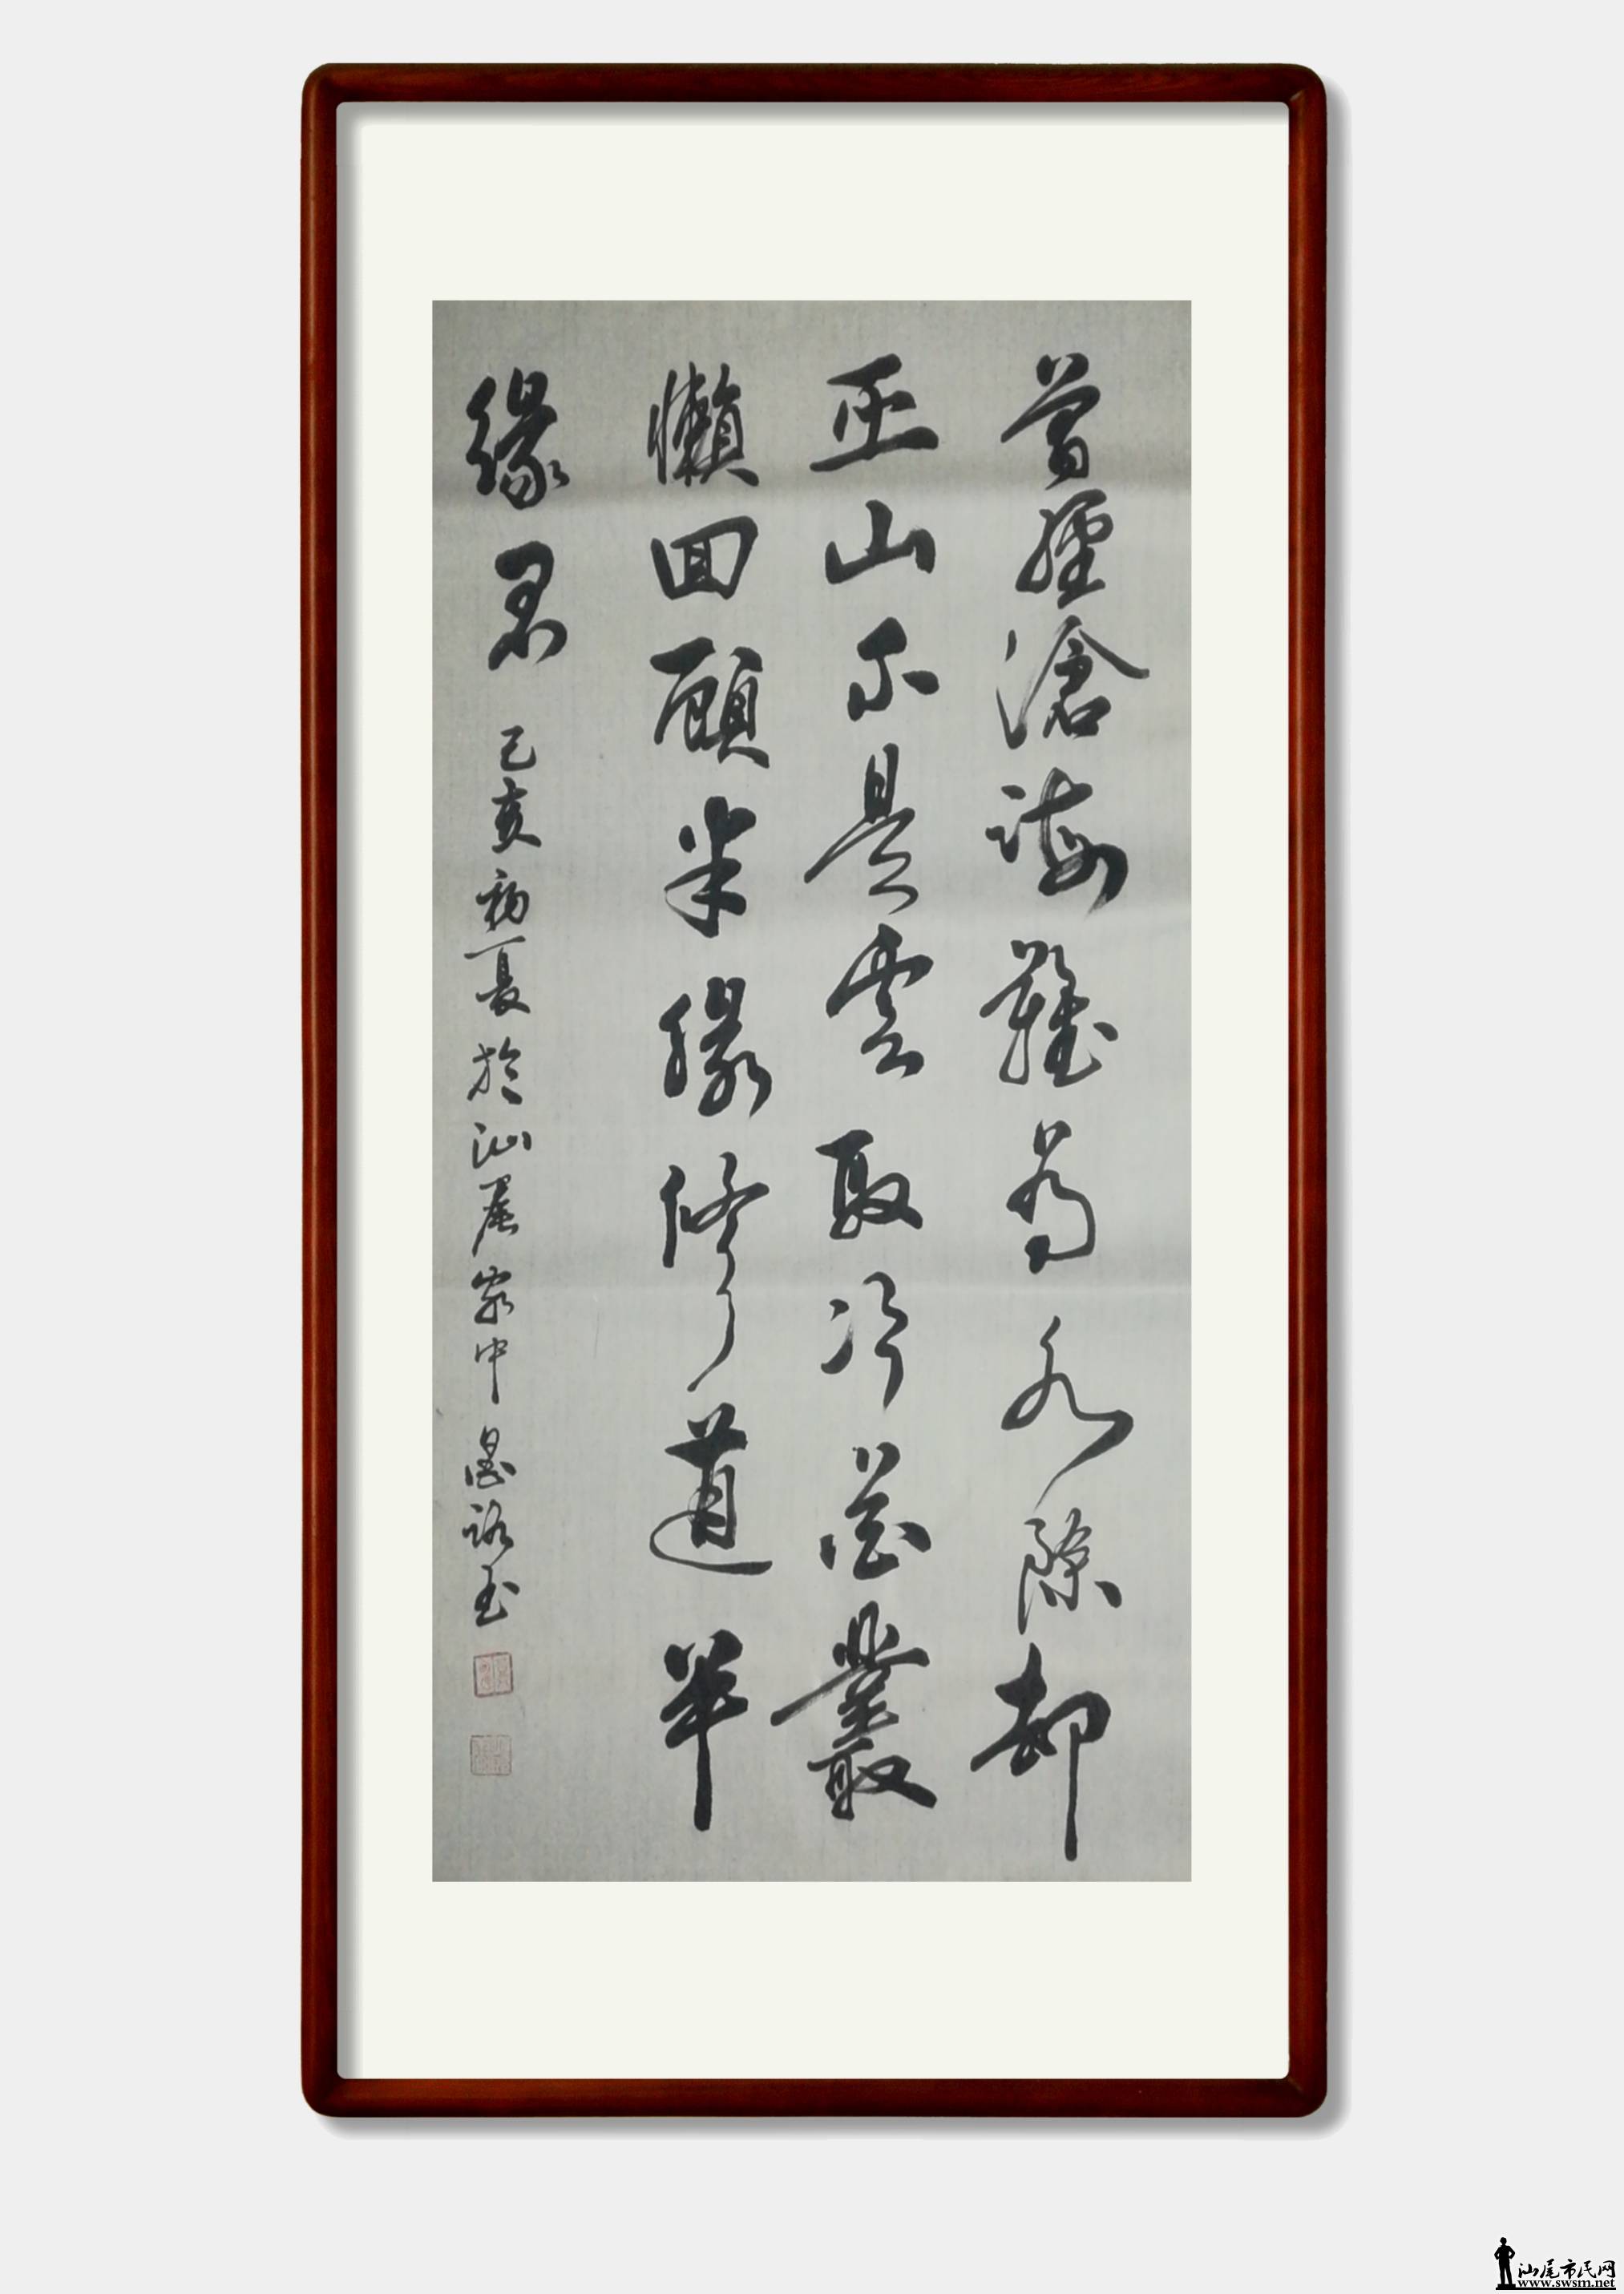 曾經滄海難為水除却
巫山不是雲取次花叢
懶回顧半緣修道半
緣君
己亥初夏於汕尾家中
汕尾市民网
www.swsm.net